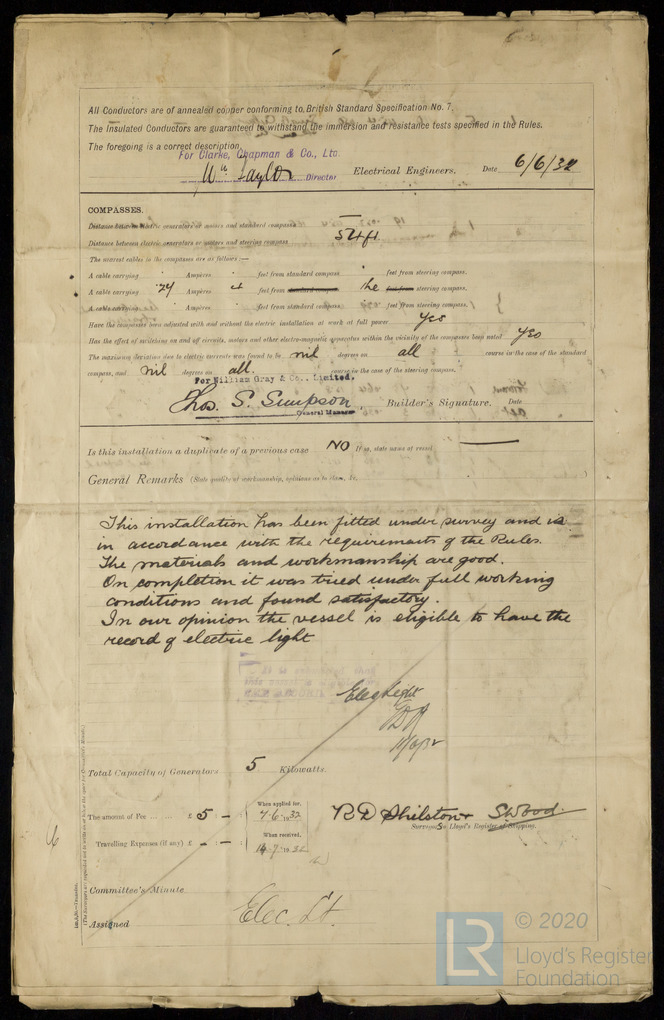 All Conductors are of annealed copper conforming to British Standard Specification No. 7.
The Insulated Conductors are guaranteed to withstand the immersion and resistance tests specified in the Rules.
The foregoing is a correct description.
For Clarke, Chapman & Co., Ltd.
Wm Taylor Director Electrical Engineers. Date 6/6/32
COMPASSES.
Distance between electric generators or motors and standard compass —
Distance between electric generators or motors and steering compass 54 ft
The nearest cables to the compasses are as follows:—
A cable carrying Ampères feet from standard compass feet from steering compass.
A cable carrying Ampères at feet from standard compass the feet from steering compass.
A cable carrying Ampères feet from standard compass feet from steering compass.
Have the compasses been adjusted with and without the electric installation at work at full power Yes
Has the effect of switching on and off circuits, motors and other electro-magnetic apparatus within the vicinity of the compasses been noted Yes
The maximum deviation due to electric currents was found to be nil degrees on all course in the case of the standard
compass, and nil degrees on all. course in the case of the steering compass.
For William Gray & Co., Limited.
Thos. S. Simpson General Manager Builder's Signature. Date
Is this installation a duplicate of a previous case NO If so, state name of vessel —
General Remarks (State quality of workmanship, opinions as to class, &c.)
This installation has been fitted under survey and is
in accordance with the requirements of the Rules.
The materials and workmanship are good.
On completion it was tried under full working
conditions and found satisfactory.
In our opinion the vessel is eligible to have the
record of electric light
Elec Light
Total Capacity of Generators 5 Kilowatts.
The amount of Fee ... £ 5 : – :
When applied for,
7.6.1932
Travelling Expenses (if any) £ – : – :
When received,
14.7.1932
R D Shilston & S. Wood.
Surveyors to Lloyd's Register of Shipping.
Committee's Minute
Assigned Elec. Lt.
LR
© 2020
Lloyd's Register
Foundation